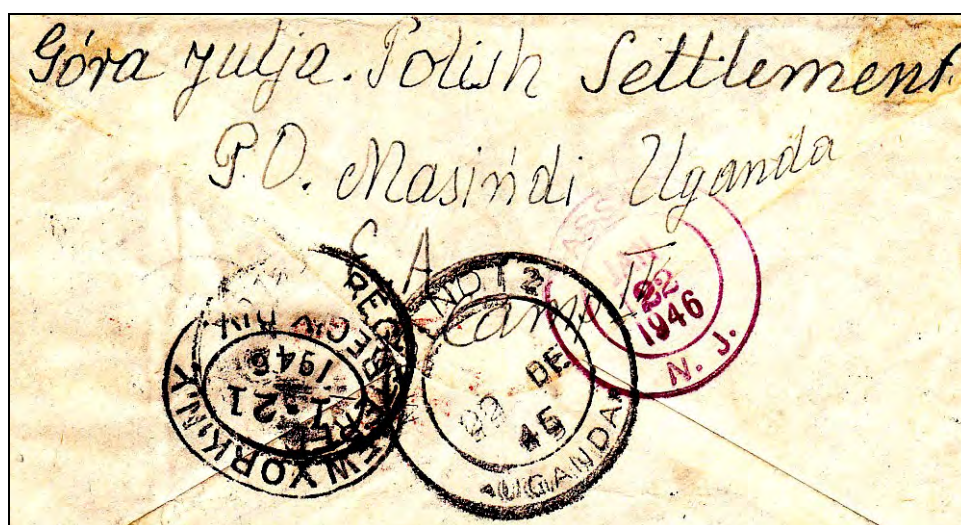 Góra Julja. Polish Settlement.
P.O. Masińdi Uganda
E. A.
Camp IV
NEW YORK, N.Y. REG'Y
RECIV. DIV.
1-21
1946
NDI 2
22 DE
45
UGANDA
ASS
22
1946
N. J.